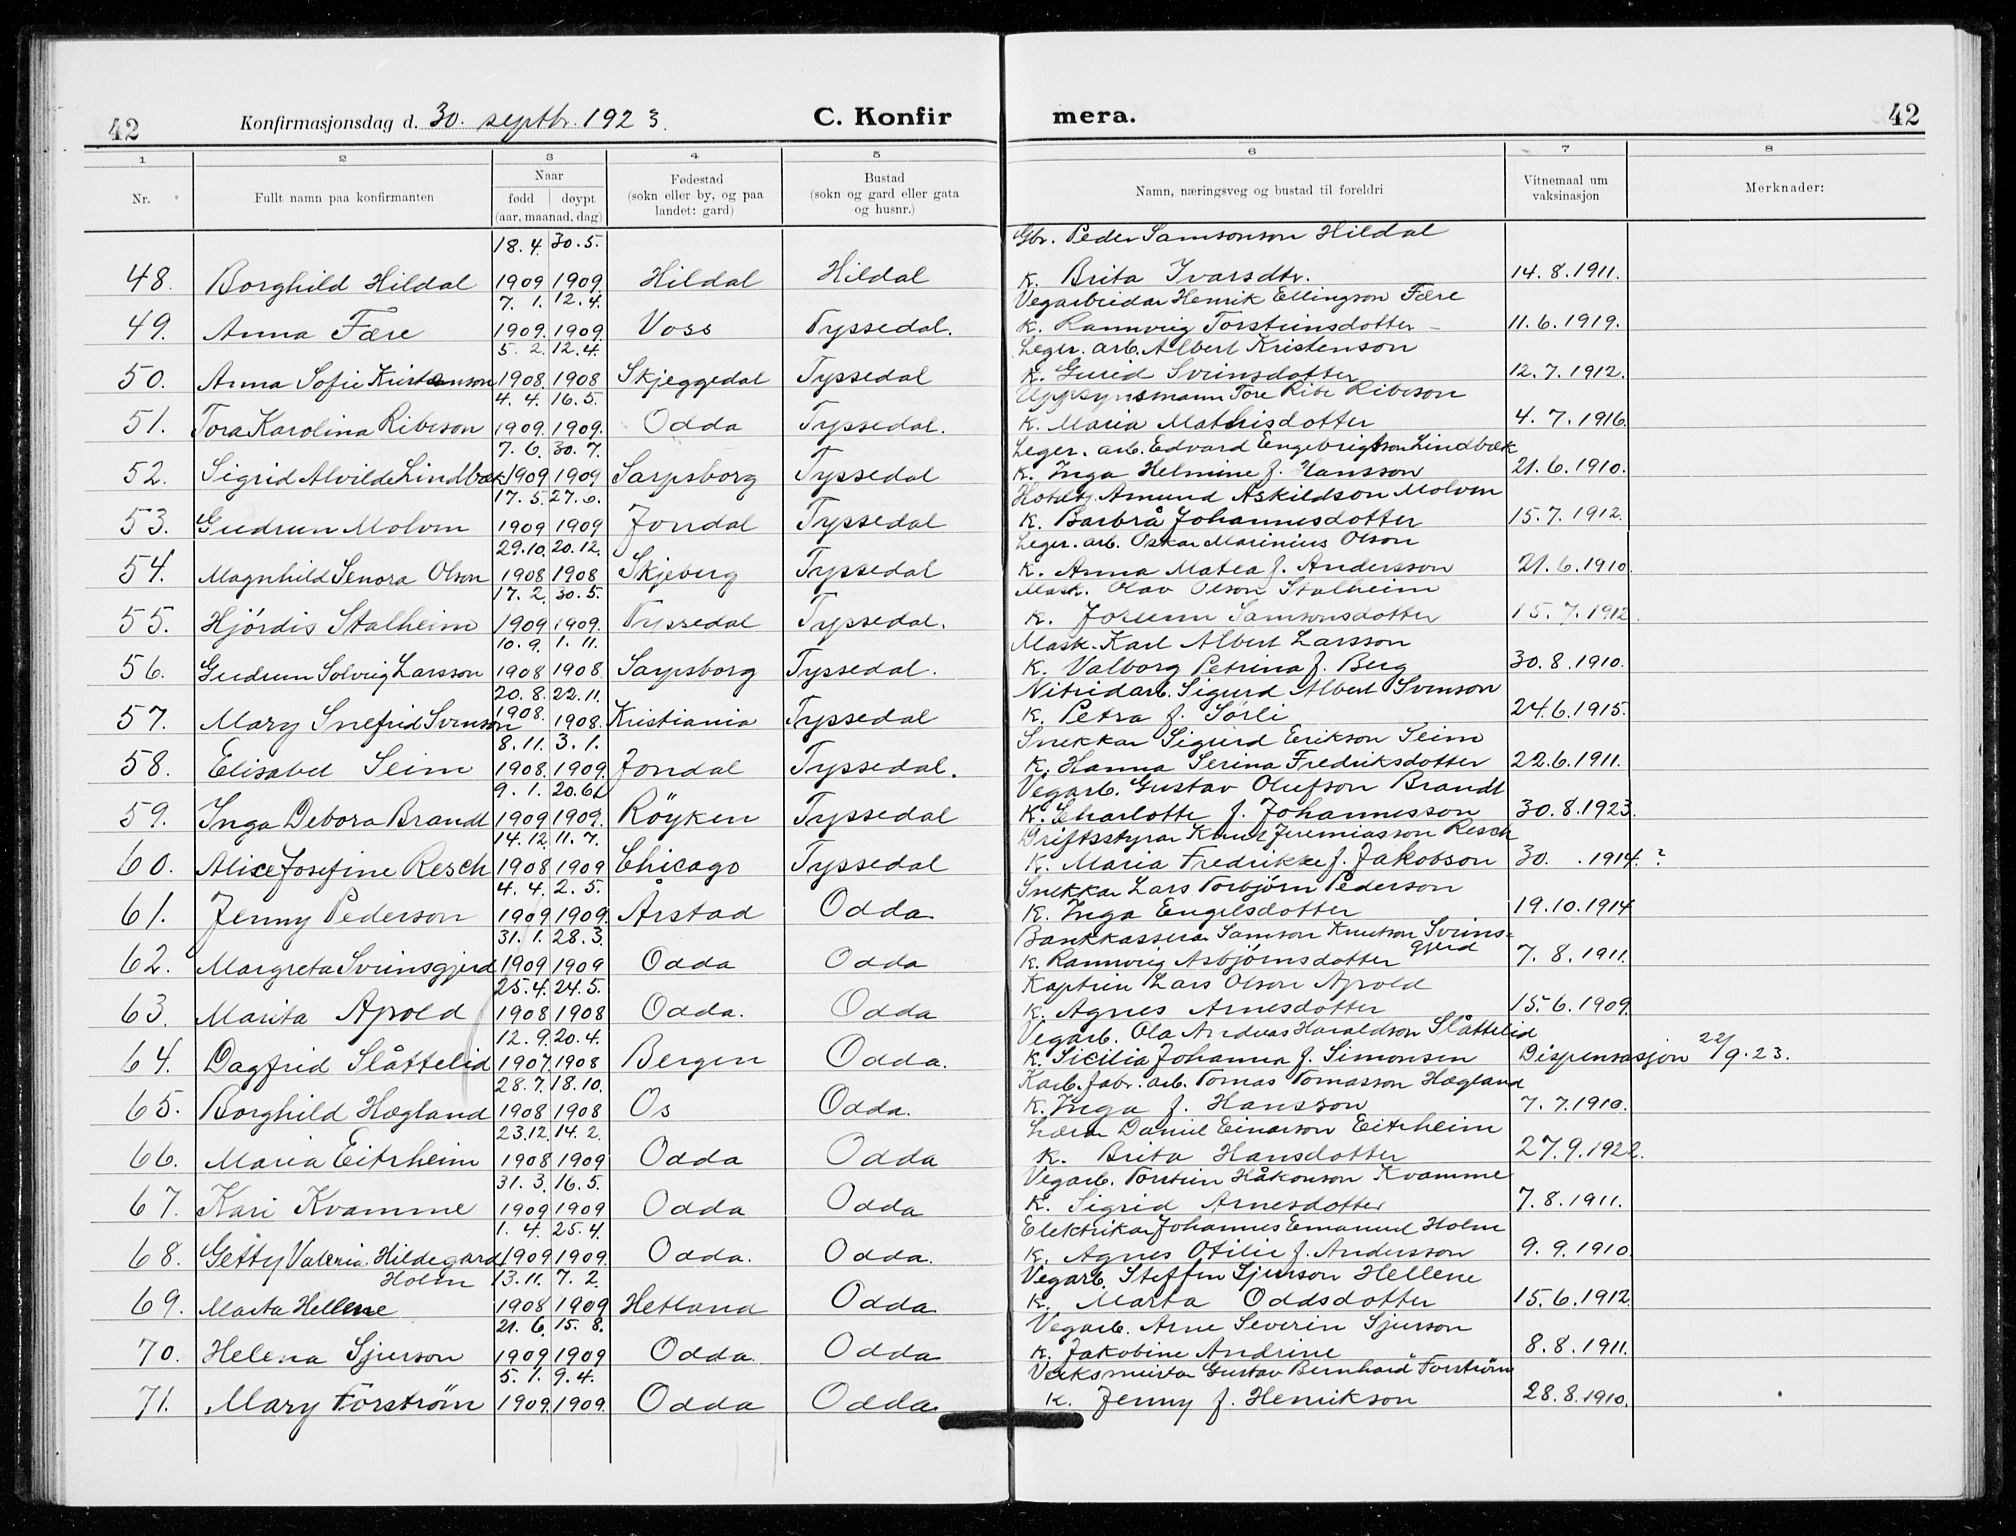 42 Konfirmasjonsdag d. 30. septbr. 1923. C. Konfir mera. 42
1 2 3 4 5 6 7 8
Nr. Fullt namn paa konfirmanten Naar født døypt (aar, maanad, dag) Fødestad (sokn eller by, og paa landet: gard) Bustad (sokn og gard eller gata og husnr.) Namn, næringsveg og bustad til foreldri Vitnemaal um vaksinasjon Merknader:
18.4. 30.5. Gbr. Peder Samsonson Hildal
48. Borghild Hildal 1909 1909 Hildal Hildal K. Brita Ivarsdtr. 14.8.1911.
7. 1. 12.4. Vegarbeidar Henrik Ellingson Fære
49. Anna Fære 1909. 1909. Voss Tyssedal. K. Rannveig Torsteinsdotter 11.6.1919.
5. 2. 12.4. Leger. arb. Albert Kristenson
50. Anna Sofie Kristenson 1908. 1908 Skjeggedal Tyssedal K. Gurid Sveinsdotter 12.7.1912.
4. 4. 16.5. Uppsynsmann Tore Ribe Ribeson
51. Tora Karolina Ribeson 1909. 1909. Odda Tyssedal. K. Maria Mathisdotter 4.7.1916.
7. 6. 30. 7. Leger. arb. Edvard Engebrigtson Lindbæk
52. Sigrid Alvilde Lindbæk 1909 1909 Sarpsborg Tyssedal K. Inga Helmine f. Hansson 21.6.1910.
17. 5. 27.6. Amund Askildson Molven
53. Gudrun Molven 1909 1909 Jondal Tyssedal K. Barbrå Johannesdotter 15.7.1912.
29.10. 20.12. Leger. arb. Oskar Marinius Olson
54. Magnhild Senora Olson 1908 1908 Skjeberg Tyssedal K. Anna Matea f. Andersson 21.6.1910.
17. 2. 30.5. Mask. Olav Olson Stalheim
55. Hjördis Stalheim 1909 1909. Tyssedal Tyssedal. K. Jorunn Samsonsdotter 15.7.1912.
10. 9. 1. 11. Mask. Karl Albert Larsson
56. Gudrun Solveig Larsson 1908 1908. Sarpsborg Tyssedal. K. Valborg Petrina f. Berg 30.8.1910.
20. 8. 22.11. Nitridarb. Sigurd Albert Svenson
57. Mary Snefrid Svenson 1908. 1908. Kristiania Tyssedal K. Petra f. Sörli 24.6.1915.
8. 11. 3. 1. Snekkar Sigurd Erikson Seim
58. Elisabet Seim 1908. 1909. Jondal Tyssedal. K. Hanna Serina Fredriksdotter 22.6.1911.
9. 1. 20.6. Vegarb. Gustav Olufson Brandt
59. Inga Debora Brandt 1909 1909. Röyken Tyssedal K. Charlotte f. Johannesson 30.8.1923.
14.12. 11. 7. Driftsstyrar Knut Jeremiasson Resch
60. Alice Josefine Resch 1908 1909 Chicago Tyssedal K. Maria Fredrikke f. Jakobson 30. .1914. ?
4. 4. 2. 5. Snekkar Lars Torbjörn Pederson
61. Jenny Pederson 1909 1909. Årstad Odda. K. Inga Engelsdotter 19.10.1914
31. 1. 28.3. Bankkasserar Samson Knutson Sveins=
62. Margreta Sveinsgjerd 1909 1909 Odda Odda K. Rannveig Asbjörnsdotter gjerd 7.8.1911.
25.4. 24.5. Kaptein Lars Olson Apold
63. Marita Apold 1908 1908 Odda. Odda K. Agnes Arnesdotter 15.6.1909.
12. 9. 20.4. Vegarb. Ola Andreas Haraldson Slåttelid
64. Dagfrid Slåttelid 1907. 1908 Bergen Odda. K. Sicilia Johanna f. Simonsen Dispensasjon 22/9.23.
28.7. 18.10. Karb. fabr. arb. Tomas Tomasson Hægland
65. Borghild Hægland 1908 1908 Os Odda. K. Inga f. Hansson 7.7.1910.
23.12. 14. 2. Lærar Daniel Einarson Eitrheim
66. Maria Eitrheim 1908 1909 Odda Odda K. Brita Hansdotter 27.9.1922.
31. 3. 16.5. Vegarb. Torstein Håkonson Kvamme
67. Kari Kvamme 1909 1909 Odda Odda K. Sigrid Arnesdotter 7.8.1911.
1. 4. 25.4. Elektrikar Johannes Emanuel Holm
68. Getty Valeria Hildegard 1909. 1909. Odda. Odda. K. Agnes Otilie f. Andersson 9.9.1910.
Holm 13.11. 7. 2. Vegarb. Steffen Sjurson Hellene
69. Marta Hellene 1908 1909 Hetland Odda. K. Marta Oddsdotter 15.6.1912.
21. 6. 15. 8. Vegarb. Arne Severin Sjurson
70. Helena Sjurson 1909 1909 Odda. Odda K. Jakobine Andrine 8.8.1911.
5. 1. 9.4. Verksmeistar Gustav Bernhard Forström
71. Mary Forström 1909. 1909. Odda Odda. K. Jenny f. Henrikson 28.8.1910.